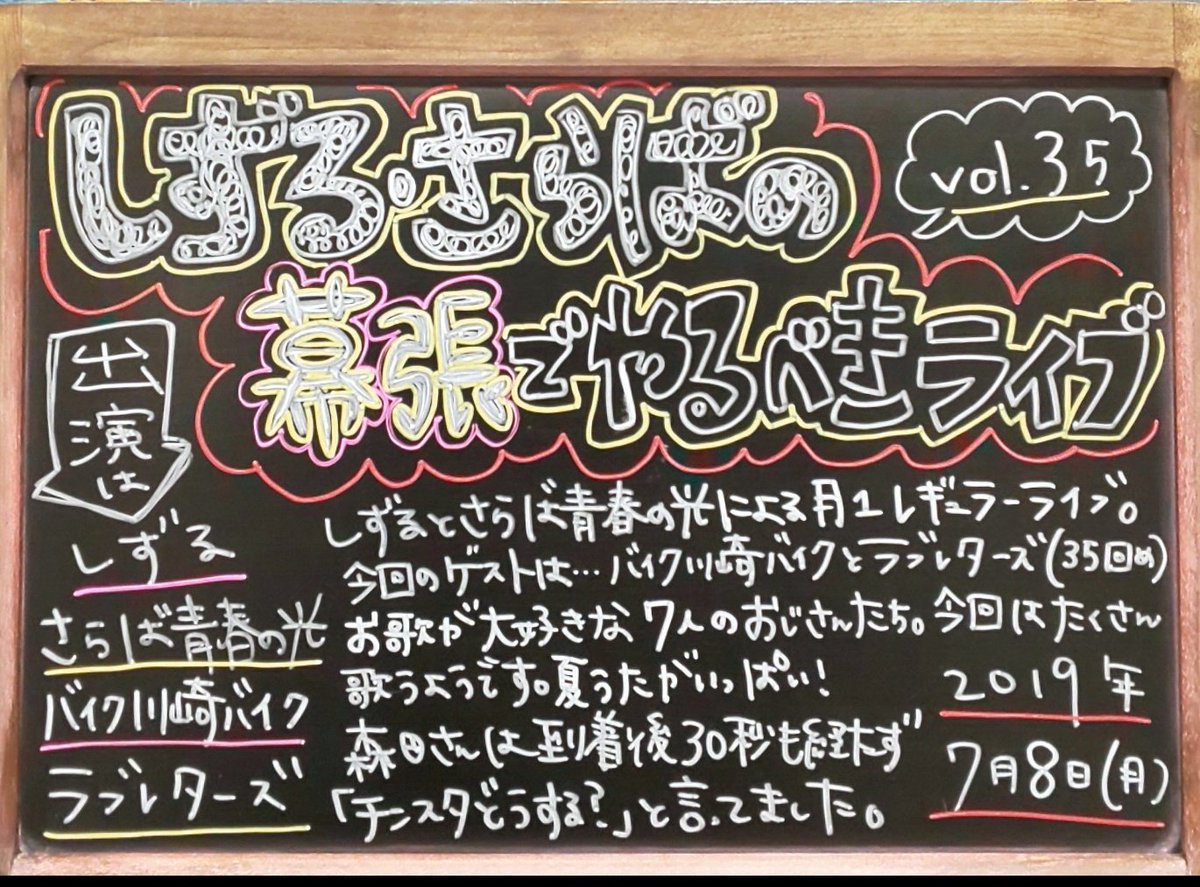 しずる・さらばの
vol.35
幕張でやるべきライブ
出演は
しずる
さらば青春の光
バイク川崎バイク
ラブレターズ
しずるとさらば青春の光による月1レギュラーライブ。
今回のゲストは…バイク川崎バイクとラブレターズ(35回め)
お歌が大好きな7人のおじさんたち。今回はたくさん
歌うようです。夏うたがいっぱい!
森田さんは到着後30秒も経たず
「チンスタどうする?」と言ってました。
2019年
7月8日(月)